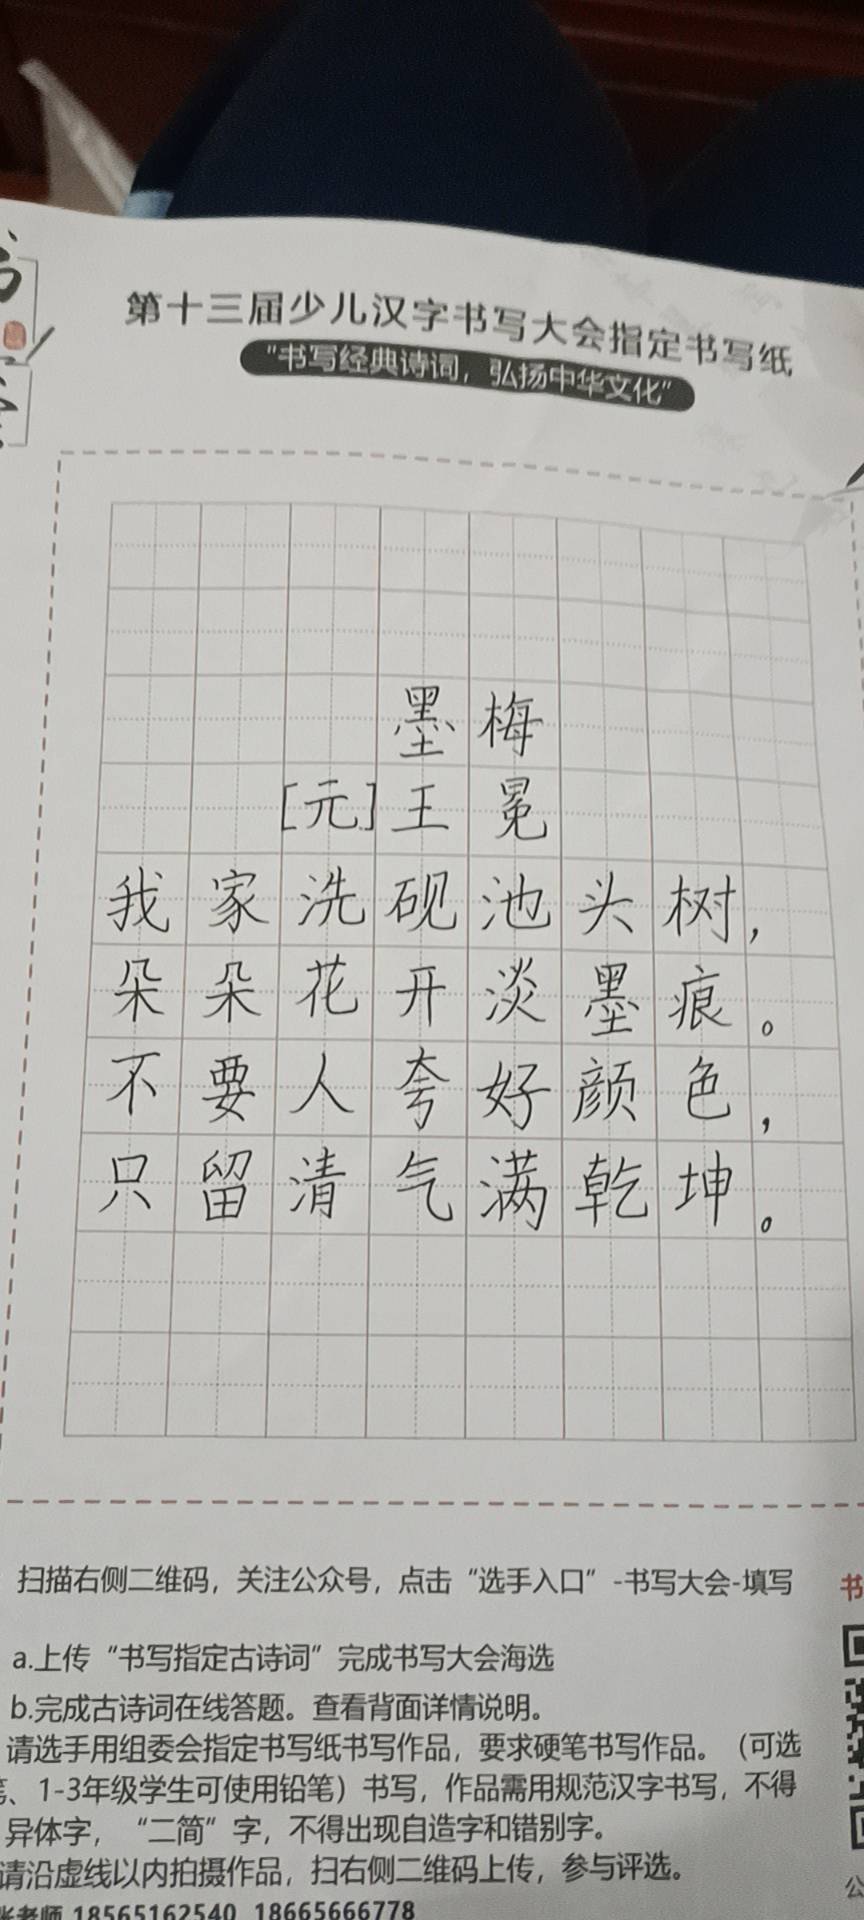 第十三届少儿汉字书写大会指定书写纸
“书写经典诗词，弘扬中华文化”
墨梅
[元]王冕
我家洗砚池头树，
朵朵花开淡墨痕。
不要人夸好颜色，
只留清气满乾坤。
扫描右侧二维码，关注公众号，点击“选手入口”-书写大会-填写
书
a.上传“书写指定古诗词”完成书写大会海选
b.完成古诗词在线答题。查看背面详情说明。
请选手用组委会指定书写纸书写作品，要求硬笔书写作品。（可选
、1-3年级学生可使用铅笔）书写，作品需用规范汉字书写，不得
异体字，“二简”字，不得出现自造字和错别字。
请沿虚线以内拍摄作品，扫右侧二维码上传，参与评选。
公
张老师 18565162540 18665666778